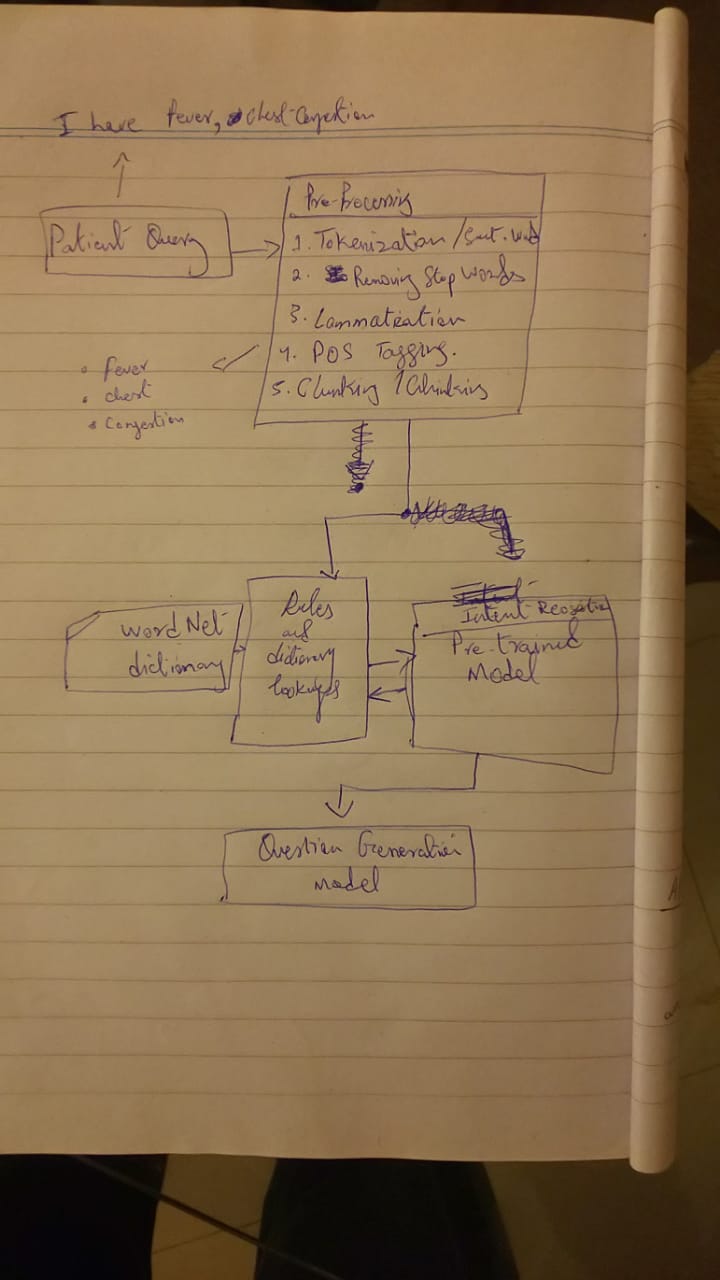 I have fever, chest-Congestion
Patient Query
Pre-Processing
1. Tokenization / Sent. Word
2. Removing Stop words
3. Lammatization
4. POS Tagging.
5. Chunking / Chinking
• fever
• chest
• Congestion
Rules
and
dictionary
lookups
WordNet
dictionary
Intent
Intent Recognition
Pre-trained
Model
Question Generation
Model